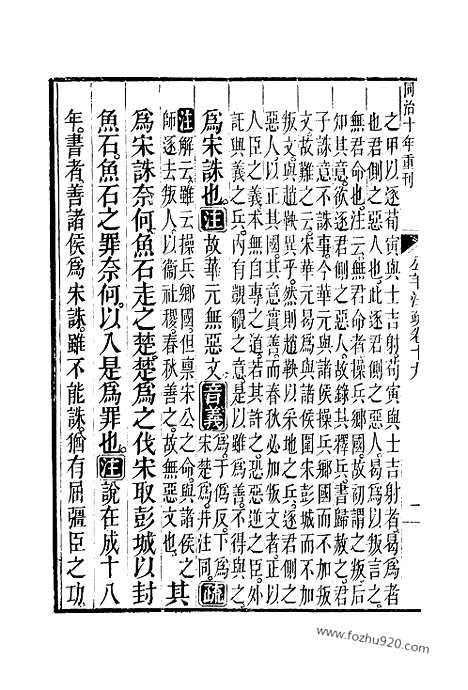 同治十年重刊
公羊注疏卷十九
二
之甲以逐荀寅與士吉射荀寅與士吉射者曷爲者
也君側之惡人也此逐君側之惡人曷爲以叛言之
無君命也注云無君命者操兵鄉國故初謂之叛后
知其意欲逐君側之惡人故錄其釋兵書歸赦之君
子誅意不誅事今華元與諸侯圍宋彭城而不加叛
文故難之云宋華元曷爲與諸侯圍宋彭城而不加
叛文與趙鞅異乎然則趙鞅以采地之兵逐君側之
人以正其國其意實善而春秋必加叛文者正以
人臣之義本無自專之道若其許之恐惡逆之臣外
託興義之兵內有覬覦之意是以雖爲善不得與之
爲宋誅也注故華元無惡文音義爲于僞反下爲
宋楚爲并注同疏
注解云雖云操兵鄉國但稟宋公之命與諸侯之
師逐去叛人以衞社稷春秋善之故無惡文也其
爲宋誅奈何魚石走之楚楚爲之伐宋取彭城以封
魚石魚石之罪奈何以入是爲罪也注說在成十八
年書者善諸侯爲宋誅雖不能誅猶有屈彊臣之功
www.fozhu920.com